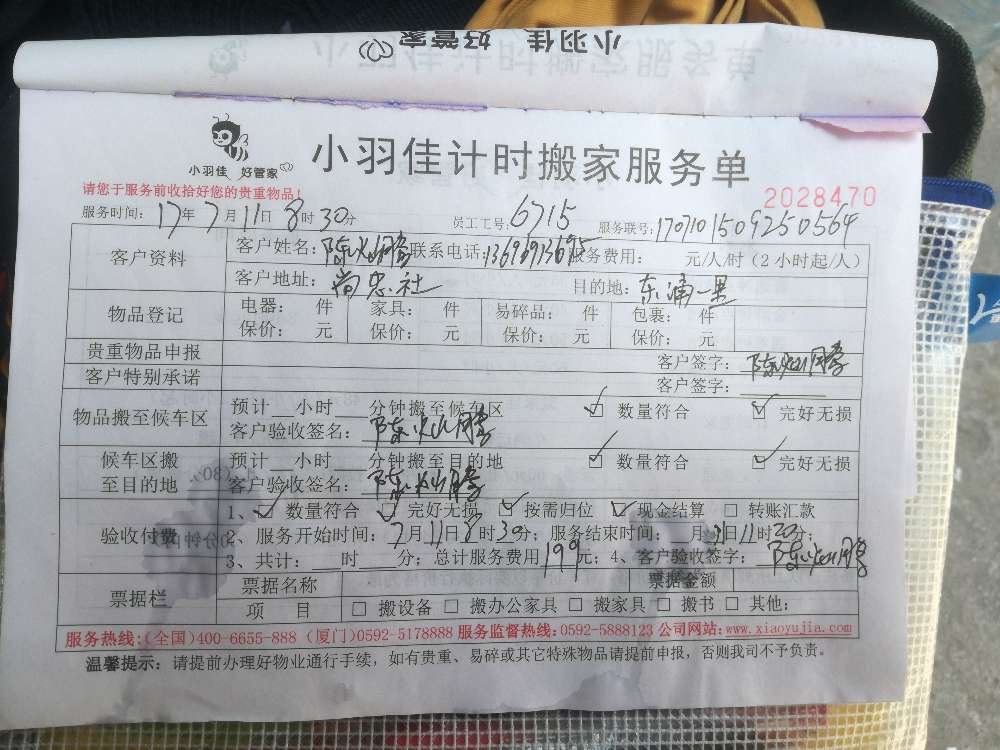 小羽佳 好管家
小羽佳 好管家
小羽佳计时搬家服务单
请您于服务前收拾好您的贵重物品！
2028470
服务时间：17年7月11日8时30分 员工工号：6715 服务联号：170710150925 0564
客户资料
客户姓名：陈 联系电话： 服务费用： 元/人/时（2小时起/人）
客户地址：尚忠社 目的地：东浦一里
物品登记
电器： 件 家具： 件 易碎品： 件 包裹： 件
保价： 元 保价： 元 保价： 元 保价： 元
贵重物品申报 客户签字：陈
客户特别承诺 客户签字：
物品搬至候车区
预计__小时__分钟搬至候车区 数量符合 完好无损
客户验收签名：陈
候车区搬至目的地
预计__小时__分钟搬至目的地 数量符合 完好无损
客户验收签名：陈
验收付费
1、 数量符合 完好无损 按需归位 现金结算 转账汇款
2、服务开始时间：7月11日8时30分；服务结束时间： 月11日11时20分；
3、共计：__时__分；总计服务费用199元；4、客户验收签字：陈
票据栏
票据名称 票据金额
项 目 搬设备 搬办公家具 搬家具 搬书 其他：
服务热线：(全国)400-6655-888 (厦门)0592-5178888 服务监督热线：0592-5888123 公司网站：www.xiaoyujia.com
温馨提示：请提前办理好物业通行手续，如有贵重、易碎或其它特殊物品请提前申报，否则我司不予负责。